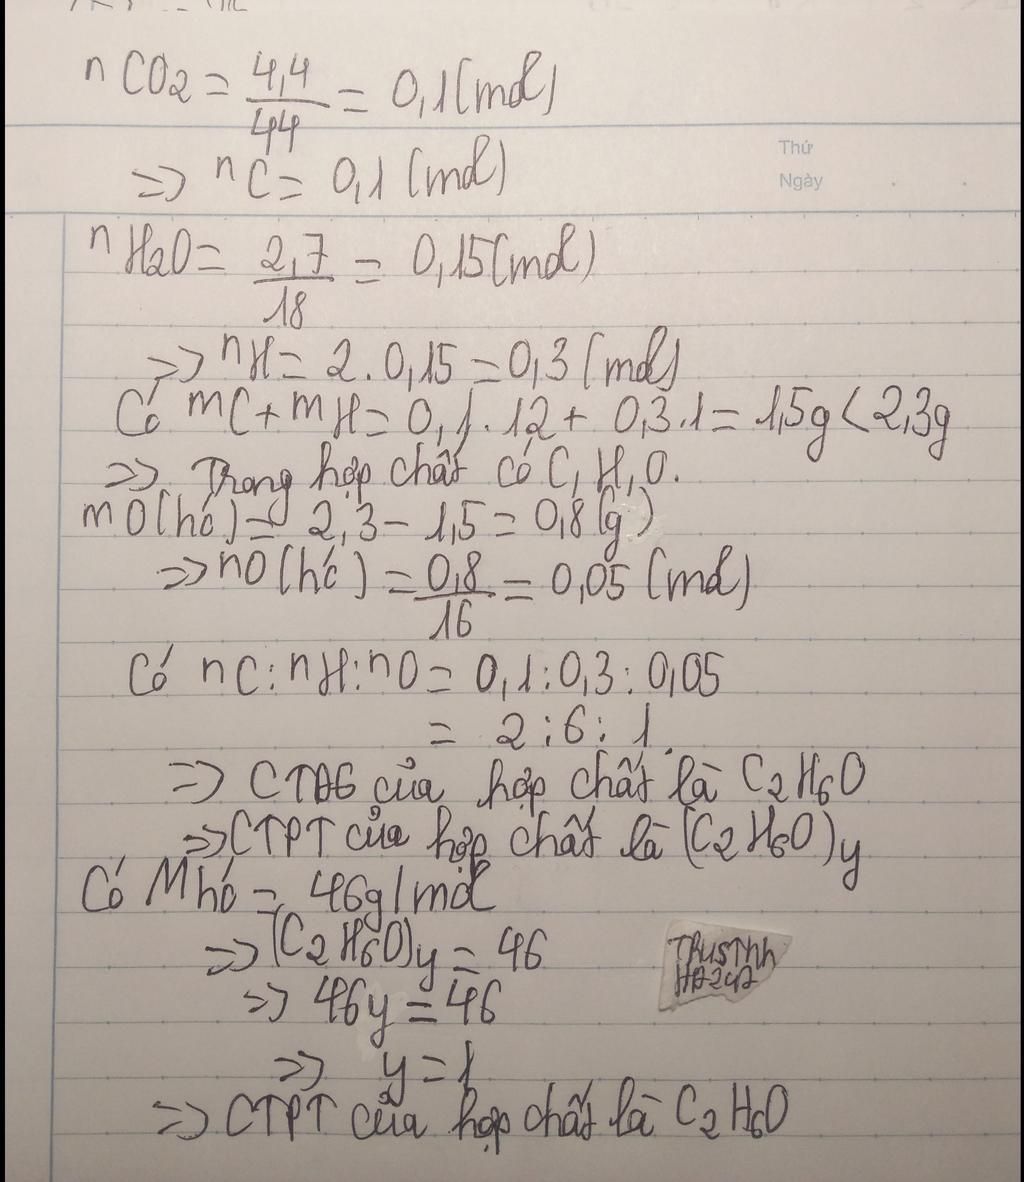 nCO2 = 4,4/44 = 0,1 (mol)
=> nC = 0,1 (mol)
Thứ
Ngày
nH2O = 2,7/18 = 0,15 (mol)
=> nH = 2.0,15 = 0,3 (mol)
Có mC + mH = 0,1.12 + 0,3.1 = 1,5g < 2,3g
=> Trong hợp chất có C, H, O.
mO(h/c) = 2,3 - 1,5 = 0,8 (g)
=> nO(h/c) = 0,8/16 = 0,05 (mol)
Có nC : nH : nO = 0,1 : 0,3 : 0,05
= 2 : 6 : 1.
=> CTĐG của hợp chất là C2H6O
=> CTPT của hợp chất là (C2H6O)y
Có Mh/c = 46g/mol
=> (C2H6O)y = 46
=> 46y = 46
=> y = 1
=> CTPT của hợp chất là C2H6O